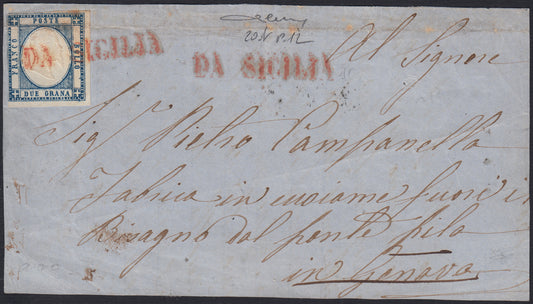 POSTE
FRANCO
BOLLO
DUE GRANA
DA SICILIA
DA SICILIA
Al Signore
Sig Pietro Campanella
Fabrica in cuoiame fuori
Bisagno dal ponte pila
in Genova